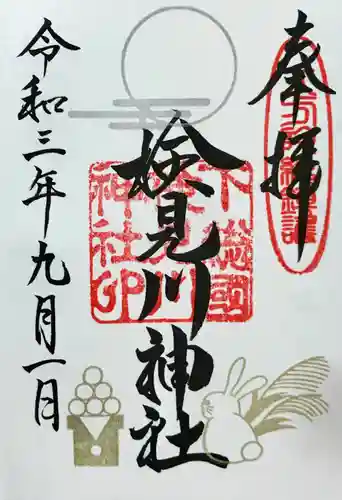 奉拝
検見川神社
下総國
神社印
令和三年九月一日